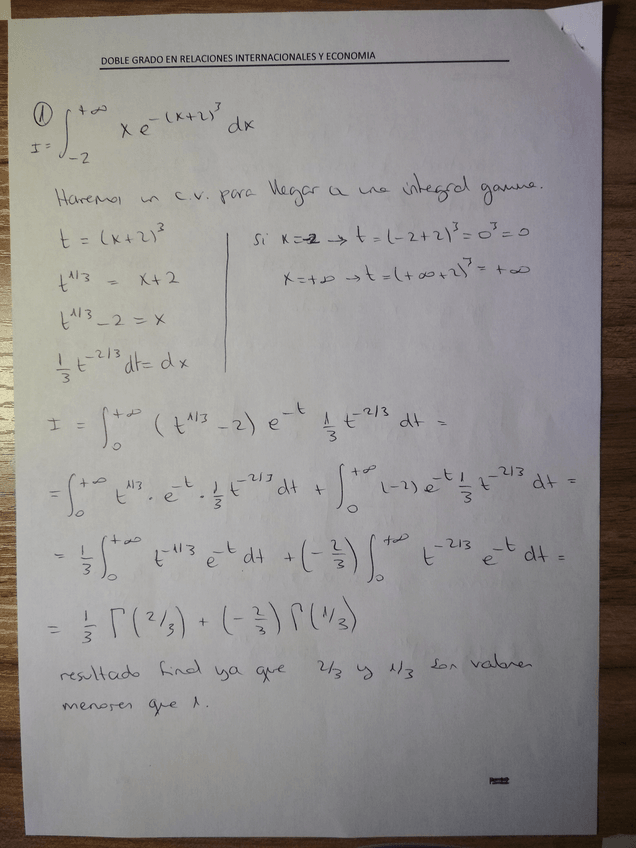 DOBLE GRADO EN RELACIONES INTERNACIONALES Y ECONOMIA
① I = ∫_{-2}^{+∞} x e^{-(x+2)^3} dx
Haremos un c.v. para llegar a una integral gamma.
t = (x+2)^3
t^{1/3} = x+2
t^{1/3} - 2 = x
1/3 t^{-2/3} dt = dx
Si x = -2 → t = (-2+2)^3 = 0^3 = 0
x = +∞ → t = (+∞+2)^3 = +∞
I = ∫_0^{+∞} (t^{1/3} - 2) e^{-t} 1/3 t^{-2/3} dt =
= ∫_0^{+∞} t^{1/3} · e^{-t} · 1/3 t^{-2/3} dt + ∫_0^{+∞} (-2) e^{-t} 1/3 t^{-2/3} dt =
= 1/3 ∫_0^{+∞} t^{-1/3} e^{-t} dt + (-2/3) ∫_0^{+∞} t^{-2/3} e^{-t} dt =
= 1/3 Γ(2/3) + (-2/3) Γ(1/3)
resultado final ya que 2/3 y 1/3 son valores
menores que 1.